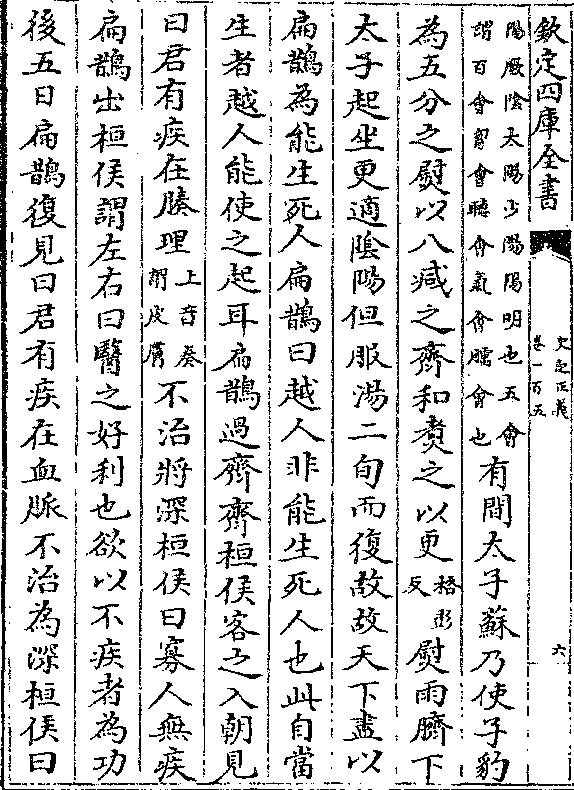 欽定四庫全書
史記正義
卷一百五
六
陽厥隂太陽少陽陽明也五會
謂百會胷會聽會氣會臑會也
有間太子蘇乃使子豹
為五分之熨以八減之齊和煑之以更
格彭
反
熨兩脇下
太子起坐更適隂陽但服湯二旬而復故故天下盡以
扁鵲為能生死人扁鵲曰越人非能生死人也此自當
生者越人能使之起耳扁鵲過齊齊桓侯客之入朝見
曰君有疾在腠理
上音奏
謂皮膚
不治將深桓侯曰寡人無疾
扁鵲出桓侯謂左右曰醫之好利也欲以不疾者為功
後五日扁鵲復見曰君有疾在血脈不治為深桓侯曰